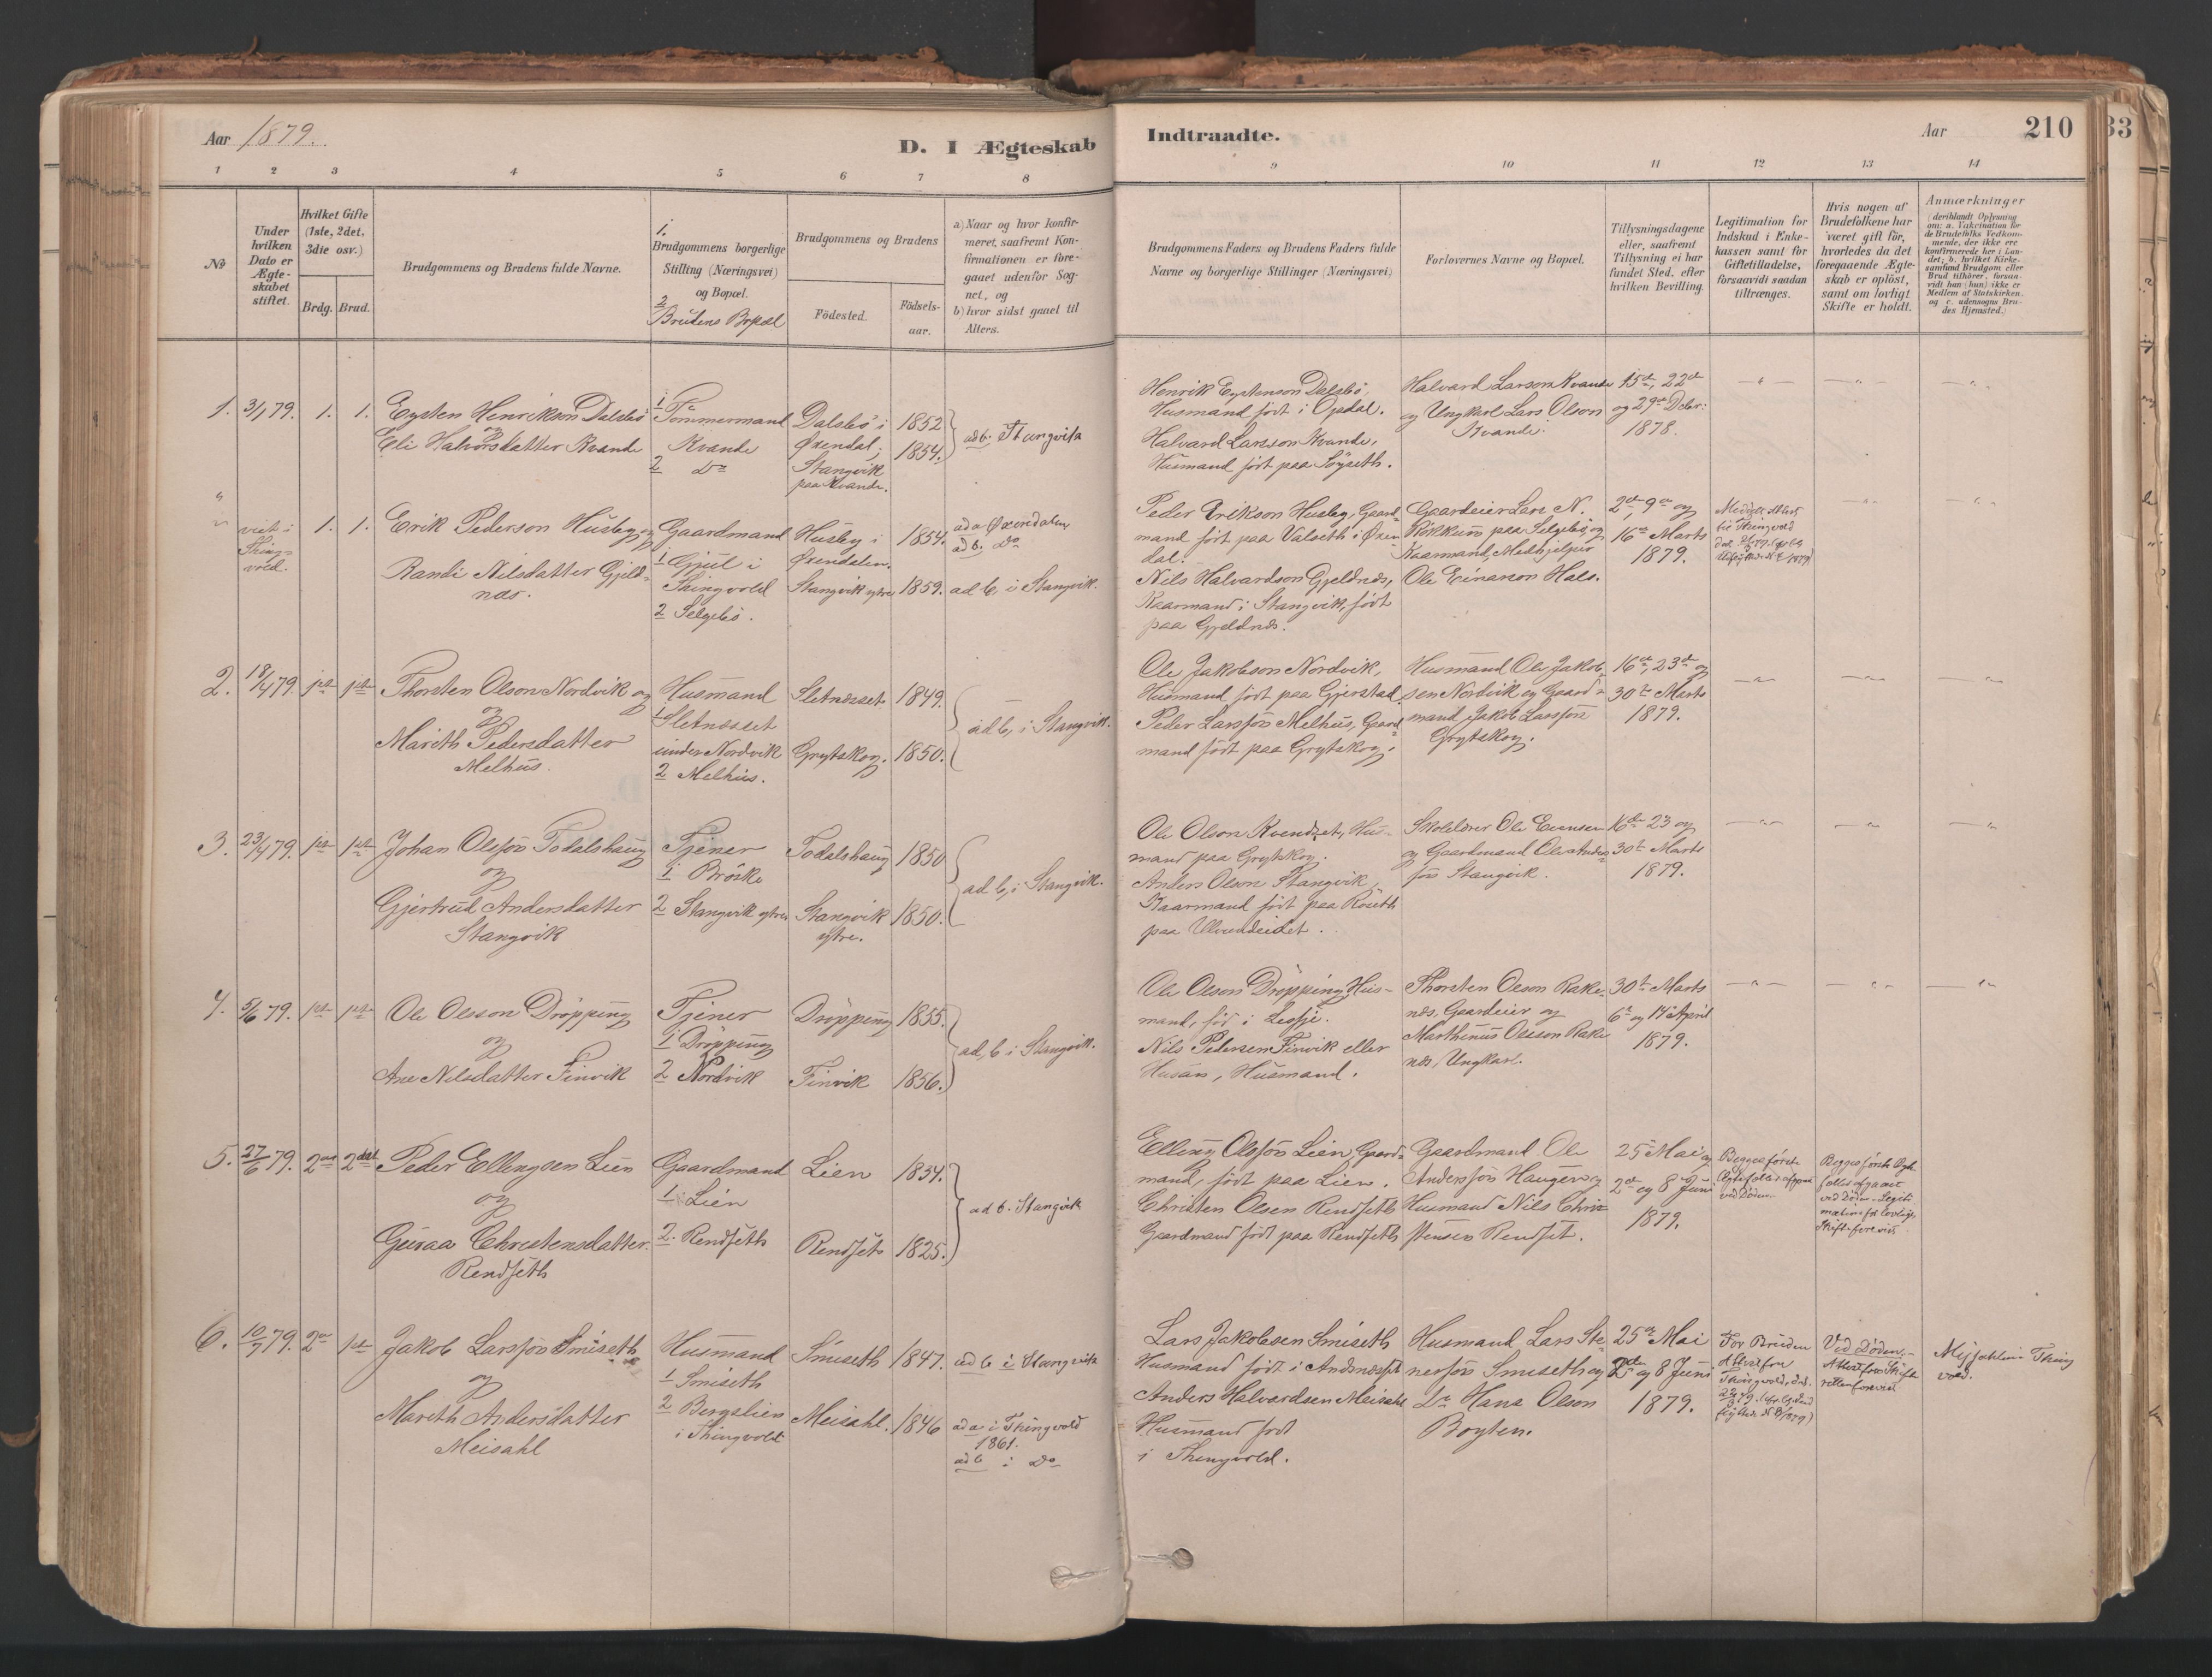 Aar 1879.
D. I Ægteskab Indtraadte.
Aar 210
33
1 2 3 4 5 6 7 8 9 10 11 12 13 14
No
Under hvilken Dato er Ægte-skabet stiftet.
Hvilket Gifte (1ste, 2det, 3die osv.)
Brdg. Brud.
Brudgommens og Brudens fulde Navne.
1. Brudgommens borgerlige Stilling (Næringsvei) og Bopæl.
2 Brudens Bopæl
Brudgommens og Brudens
Födested. Födsels-aar.
a) Naar og hvor konfir-meret, saafremt Kon-firmationen er fore-gaaet udenfor Sog-net, og
b) hvor sidst gaaet til Alters.
Brudgommens Faders og Brudens Faders fulde Navne og borgerlige Stillinger (Næringsvei)
Forlovernes Navne og Bopæl.
Tillysningsdagene eller, saafremt Tillysning ei har fundet Sted, efter hvilken Bevilling.
Legitimation for Indskud i Enke-kassen samt for Giftetilladelse, forsaavidt saadan tiltrænges.
Hvis nogen af Brudefolkene har været gift för, hvorledes da det foregaaende Ægte-skab er oplöst, samt om lovligt Skifte er holdt.
Anmærkninger
(deriblandt Oplysning om: a. Vakcination for de Brudefolks Vedkom-mende, der ikke ere konfirmerede her i Lan-det; b. hvilket Kirke-samfund Brudgom eller Brud tilhörer, forsaa-vidt han (hun) ikke er Medlem af Statskirken, og c. udensogns Bru-des Hjemsted.)
1. 3/1 79. 1. 1.
Eysten Henrikson Dalsbö
og
Eli Halvorsdatter Kvande
1 Tömmermand
Kvande
2 Do
Dalsbö i
Öxendal;
Stangvik
paa Kvande.
1852
1854.
ad b. Stangvik
Henrik Eystenson Dalsbö,
Husmand födt i Opdal.
Halvard Larsson Kvande,
Husmand födt paa Söyseth.
Halvard Larson Kvande
og Ungkarl Lars Olson
Kvande.
15de, 22de
og 29de Decbr:
1878.
" viet i
Thing-
vold.
1. 1.
Erik Pederson Husby og
Randi Nilsdatter Gjeld-
næs.
Gaardmand
1 Gjul i
Thingvold
2 Selgebö.
Husby i
Öxendalen.
Stangvik ytre
1854.
1859.
ad a Öxendalen,
ad b. Do
ad b, i Stangvik.
Peder Erikson Husby, Gaard-
mand födt paa Valseth i Öxen
dal.
Nils Halvardson Gjeldnæs,
Kaarmand i Stangvik, födt
paa Gjeldnæs.
Gaardeier Lars N.
Rökkum paa Selgebö og
Kaarmand, Medhjelper
Ole Einarson Hals.
2den, 9de og
16de Marts
1879.
2. 18/4 79. 1ste 1ste
Thorsten Olson Nordvik og
og
Marith Pedersdatter
Melhus.
Husmand
1 Sletnesset
under Nordvik
2 Melhus.
Sletnesset
Grytskog.
1849.
1850.
ad b, i Stangvik.
Ole Jakobson Nordvik,
Husmand födt paa Gjerstad.
Peder Larssön Melhus, Gaard-
mand födt paa Grytskog.
Husmand Ole Jakob-
sen Nordvik og Gaard-
mand Jakob Larssön
Grytskog.
16de, 23de og
30te Marts
1879.
3. 23/4 79. 1ste 1ste
Johan Olssön Todalshaug
og
Gjertrud Andersdatter
Stangvik
Tjener
1 Bröske
2 Stangvik ytre
Todalshaug
Stangvik
ytre.
1850
1850.
ad b, i Stangvik.
Ole Olson Kvendset, Hus-
mand paa Grytskog.
Anders Olson Stangvik,
Kaarmand födt paa Röseth
paa Ulvundeidet.
Skolelærer Ole Einersen
og Gaardmand Ole Anders-
sön Stangvik.
16de 23 og
30te Marts
1879.
4. 5/6 79. 1ste 1ste
Ole Olsson Dröpping
og
Ane Nilsdatter Finvik
Tjener
1 Dröpping
2 Nordvik
Dröpping
Finvik
1855.
1856.
ad, b i Stangvik.
Ole Olson Dröpping, Hus-
mand, föd i Lesje.
Nils Pedersen Finvik eller
Husan, Husmand.
Thorsten Olson Rake-
næs, Gaardeier og
Marthinus Olsson Rake
næs, Ungkarl.
30te Marts
6te og 14de April
1879.
5. 27/6 79. 2den 2det
Peder Ellingsen Lien
og
Guraa Christensdatter
Rendseth
Gaardmand
1 Lien
2. Rendseth
Lien
Rendset
1834.
1825.
ad b. Stangvik
Elling Olssön Lien Gaard-
mand, födt paa Lien.
Christen Olsen Rendseth
Gaardmand födt paa Rendseth
Gaardmand Ole
Anderssön Haugen og
Husmand Nils Chri-
stensen Rendset.
25de Mai og
2den og 8 Juni
1879.
Begges förste
ved Döden
Begges förste
ved Döden. Legiti
mation for lovligt
Skifte forevist.
6. 10/7 79. 2den 1ste
Jakob Larssön Smiseth
og
Marith Andersdatter
Meisahl
Husmand
1 Smiseth
2 Bergslien
i Thingvold
Smiseth
Meisahl.
1847.
1846
ad b i Stangvik
ad a i Thingvold
1861.
ad b i Do
Lars Jakobsen Smiseth
Husmand födt i
Anders Halvardsen Meisahl
Husmand födt
i Thingvold.
Husmand Lars Ste-
nersön Smiseth og
Do Hans Olson
Boyten.
25de Mai
2den og 8 Juni
1879.
For Bruden
Attest fra
Thingvold, dat.
Ved Döden.
Attest fra Skifte
retten forevist
Thing
vold.